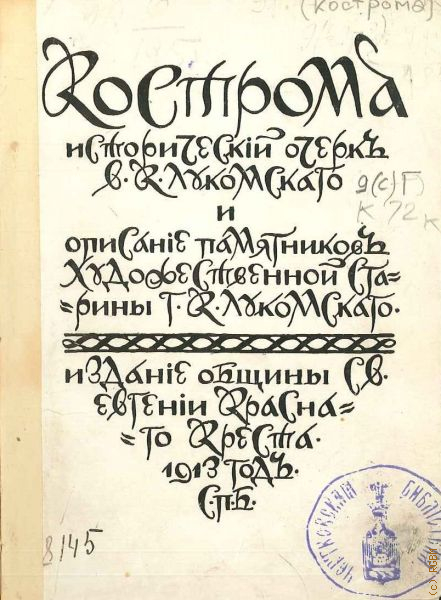 (кострома)
Кострома
историческій очеркъ
В. К. Лукомскаго
и
описаніе памятниковъ
художественной ста-
рины Г. К. Лукомскаго.
изданіе общины Св.
Евгеніи Краснa=
=го Креста.
1913 годъ.
С.П.Б.
9(с)Г)
К 72
8145
ЧЕРТКОВСКАЯ БИБЛИОТЕКА